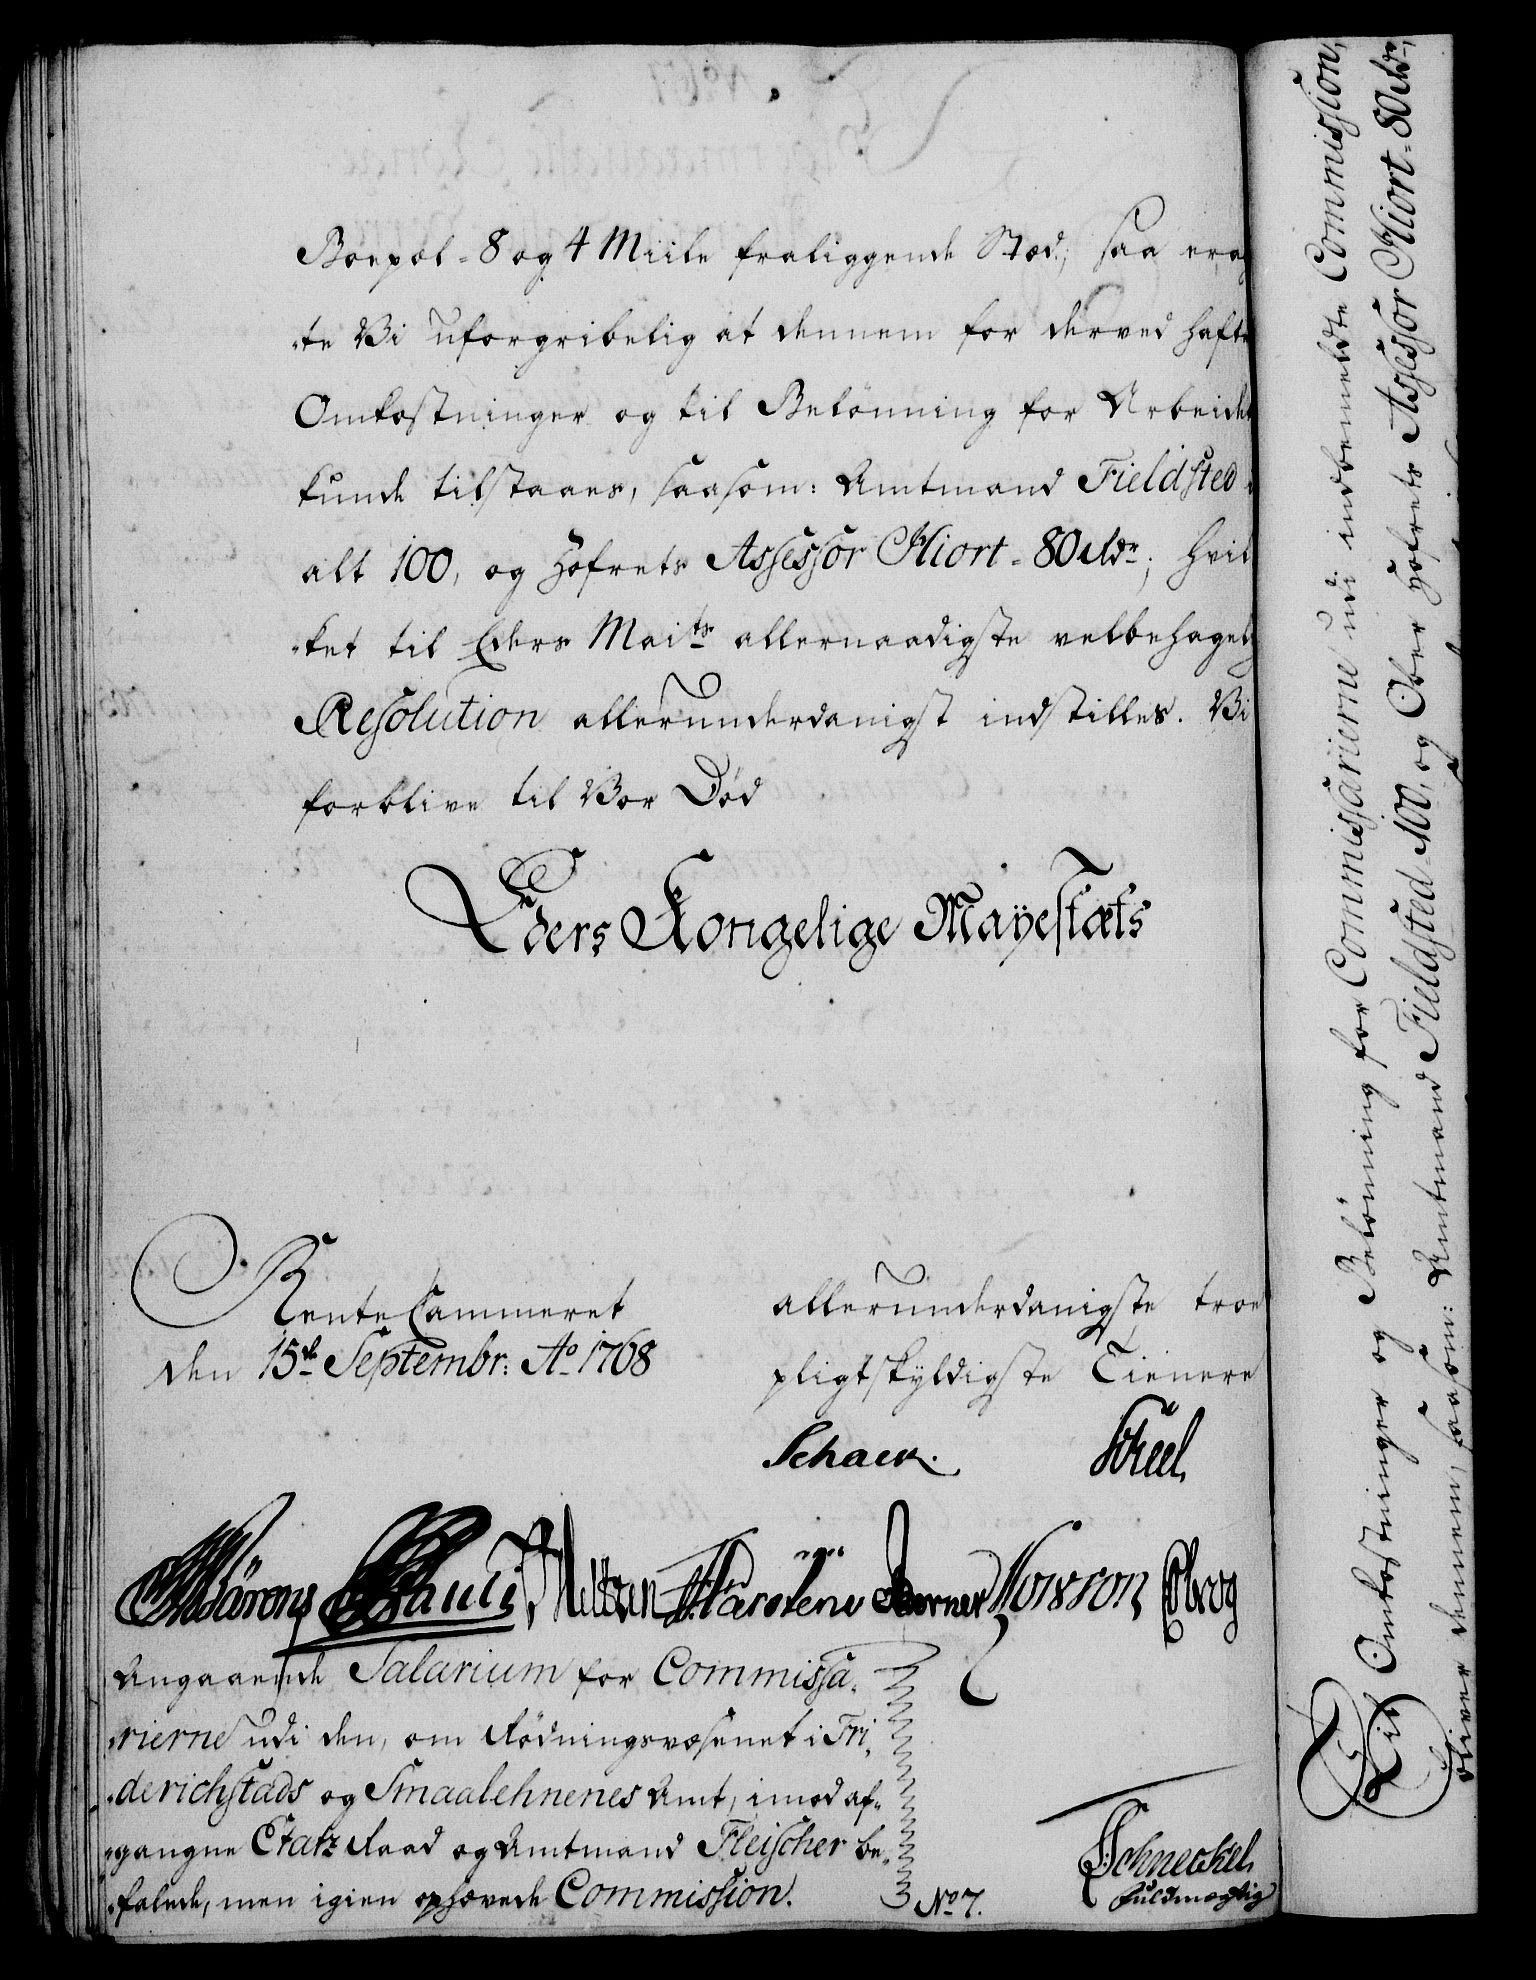 Boepæl 8 og 4 Miile fraliggende Stæd; saa erag
-te Vi uforgribelig at dennem for derved hafte
Omkostninger og til Belönning for Arbeidet
kunde tilstaaes, saasom: Amtmand Fieldsted
alt 100, og Hofrets Assessor Hiort = 80 rdr; hvil
-ket til Eders Maits allernaadigste velbehagel
Resolution allerunderdanigst indstilles. Vi
forblive til Vor Död
Eders Kongelige Mayestæts
RenteCammeret
den 15de Septembr: Ao 1768
allerunderdanigste troe
pligtskyldigste Tienere
Schack.
Scheel
Pauli
Børner
Angaaende Salarium for Commissa-
-rierne udi den, om Rödningsvæsenet i Fri-
-derichstads og Smaalehnenes Amt, imod af-
-gangne Etatz Raad og Amtmand Fleischer be-
-falede, men igien ophævede Commission.
No 7.
Schneckel
Fuldmægtig
Til Omkostninger og Belönning for Commissarierne udi indbemeldte Commission,
bliver dennem, saasom: Amtmand Fieldsted 100, og Ober Hofrets Assessor Hiort = 80 rdr,